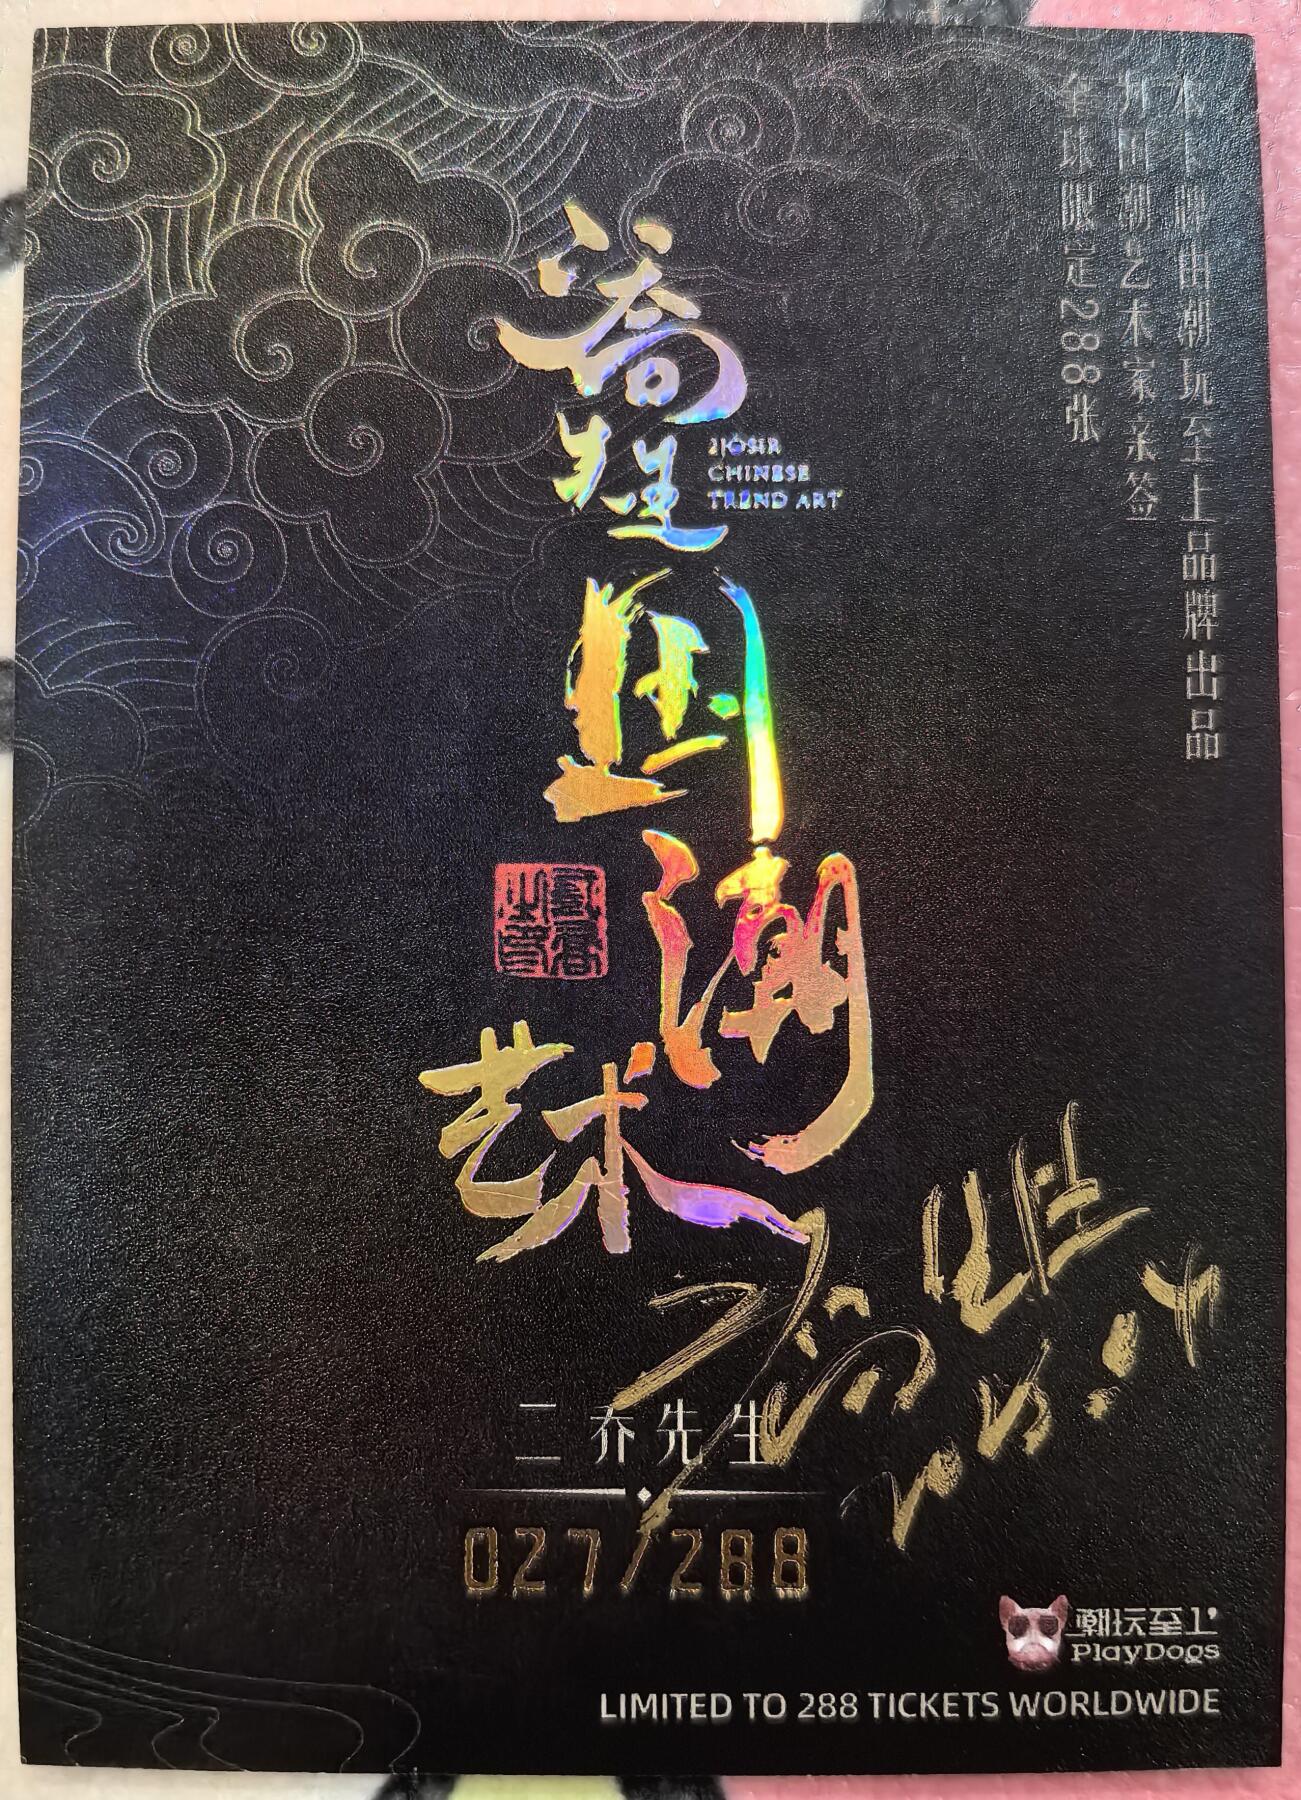 本卡牌由潮玩至上品牌出品
并由国潮艺术家亲签
全球限定288张
JIOSIR
CHINESE
TREND ART
国潮
艺术
二乔先生
027/288
潮玩至上
PlayDogs
LIMITED TO 288 TICKETS WORLDWIDE